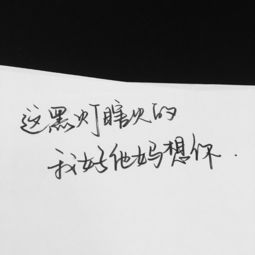 这黑灯瞎火的
我好他妈想你.